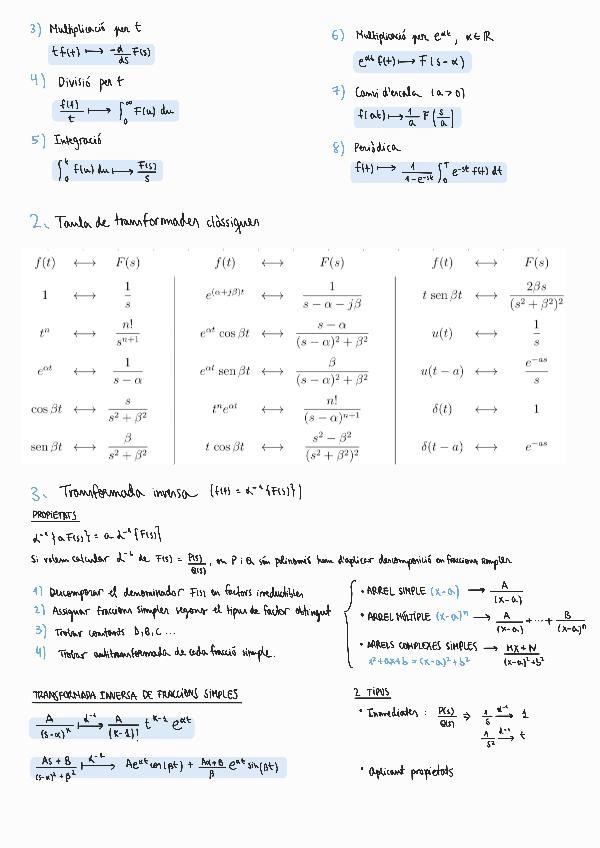 3) Multiplicació per t
t f(t) ⟼ -d/ds F(s)
4) Divisió per t
f(t)/t ⟼ ∫₀^∞ F(u) du
5) Integració
∫₀^t f(u) du ⟼ F(s)/s
6) Multiplicació per e^αt, α∈ℝ
e^αt f(t) ⟼ F(s-α)
7) Canvi d'escala (a>0)
f(at) ⟼ 1/a F[s/a]
8) Periòdica
f(t) ⟼ 1/(1-e^-st) ∫₀^T e^-st f(t) dt
2. Taula de transformades clàssiques
f(t) ⟷ F(s)
1 ⟷ 1/s
t^n ⟷ n!/s^(n+1)
e^αt ⟷ 1/(s-α)
cos βt ⟷ s/(s²+β²)
sen βt ⟷ β/(s²+β²)
f(t) ⟷ F(s)
e^(α+jβ)t ⟷ 1/(s-α-jβ)
e^αt cos βt ⟷ (s-α)/((s-α)²+β²)
e^αt sen βt ⟷ β/((s-α)²+β²)
t^n e^αt ⟷ n!/(s-α)^(n+1)
t cos βt ⟷ (s²-β²)/(s²+β²)²
f(t) ⟷ F(s)
t sen βt ⟷ 2βs/(s²+β²)²
u(t) ⟷ 1/s
u(t-a) ⟷ e^-as/s
δ(t) ⟷ 1
δ(t-a) ⟷ e^-as
3. Transformada inversa [f(t) = L⁻¹{F(s)}]
PROPIETATS
L⁻¹{a F(s)} = a L⁻¹{F(s)}
Si volem calcular L⁻¹ de F(s) = P(s)/Q(s), on P i Q són polinomis hem d'aplicar descomposició en fraccions simples
1) Descomposar el denominador F(s) en factors irreductibles
2) Assignar fraccions simples segons el tipus de factor obtingut
3) Trobar constants A, B, C ...
4) Trobar antitransformada de cada fracció simple.
• ARREL SIMPLE (x-a) ⟶ A/(x-a)
• ARREL MÚLTIPLE (x-a)^n ⟶ A/(x-a) + ··· + B/(x-a)^n
• ARRELS COMPLEXES SIMPLES ⟶ (Mx+N)/((x-a)²+b²)
x²+ax+b = (x-a)²+b²
TRANSFORMADA INVERSA DE FRACCIONS SIMPLES
A/(s-α)^k ⟼ L⁻¹ A/(k-1)! t^(k-1) e^αt
(As+B)/((s-α)²+β²) ⟼ L⁻¹ Ae^αt cos(βt) + (Aα+B)/β e^αt sin(βt)
2 TIPUS
• Immediates : P(s)/Q(s) ⇒ 1/s ⟶ L⁻¹ 1
1/s² ⟶ L⁻¹ t
• Aplicant propietats